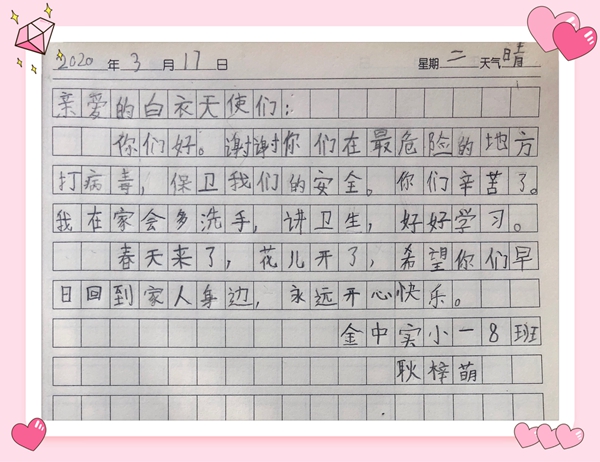 2020 年 3 月 17 日 星期 二 天气 晴
亲爱的白衣天使们:
你们好。谢谢你们在最危险的地方
打病毒,保卫我们的安全。你们辛苦了。
我在家会多洗手,讲卫生,好好学习。
春天来了,花儿开了,希望你们早
日回到家人身边,永远开心快乐。
金中实小一8班
耿梓萌